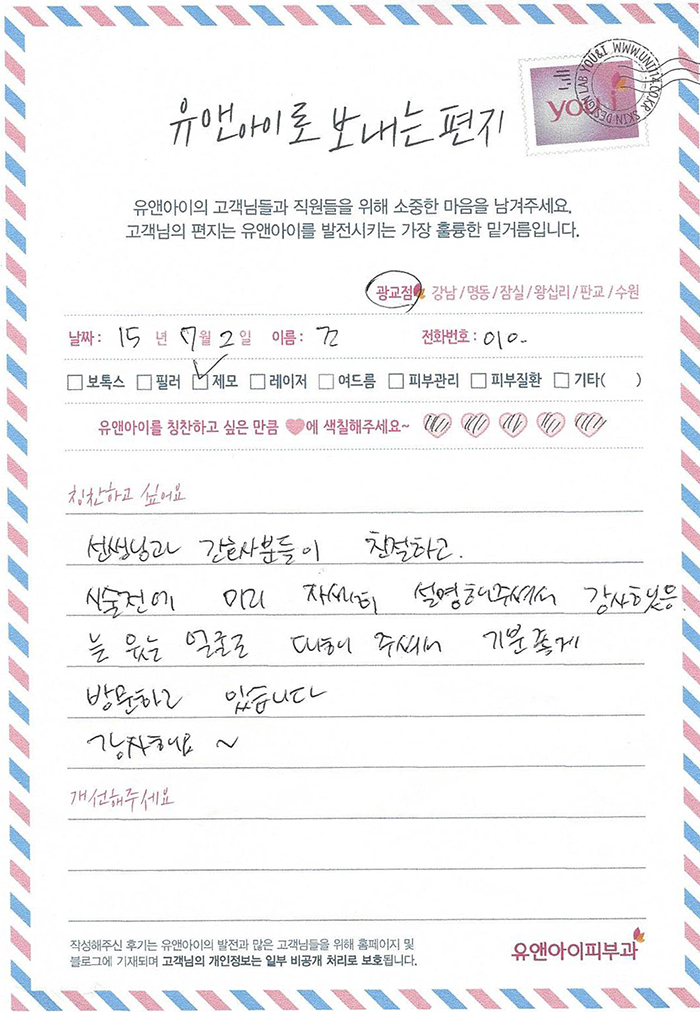 YOU&I WWW.UNI114.CO.KR SKIN DESIGN LAB
you&i
유앤아이로 보내는 편지
유앤아이의 고객님들과 직원들을 위해 소중한 마음을 남겨주세요.
고객님의 편지는 유앤아이를 발전시키는 가장 훌륭한 밑거름입니다.
광교점 강남 / 명동 / 잠실 / 왕십리 / 판교 / 수원
날짜 : 15 년 7 월 2 일 이름 : 전화번호 : 010-
보톡스 필러 제모 레이저 여드름 피부관리 피부질환 기타( )
유앤아이를 칭찬하고 싶은 만큼 에 색칠해주세요~
칭찬하고 싶어요
선생님과 간호사분들이 친절하고.
시술전에 미리 자세히 설명해주셔서 감사했음.
늘 웃는 얼굴로 대해 주셔서 기분좋게
방문하고 있습니다
감사해요 ~
개선해주세요
작성해주신 후기는 유앤아이의 발전과 많은 고객님들을 위해 홈페이지 및
블로그에 기재되며 고객님의 개인정보는 일부 비공개 처리로 보호됩니다.
유앤아이피부과